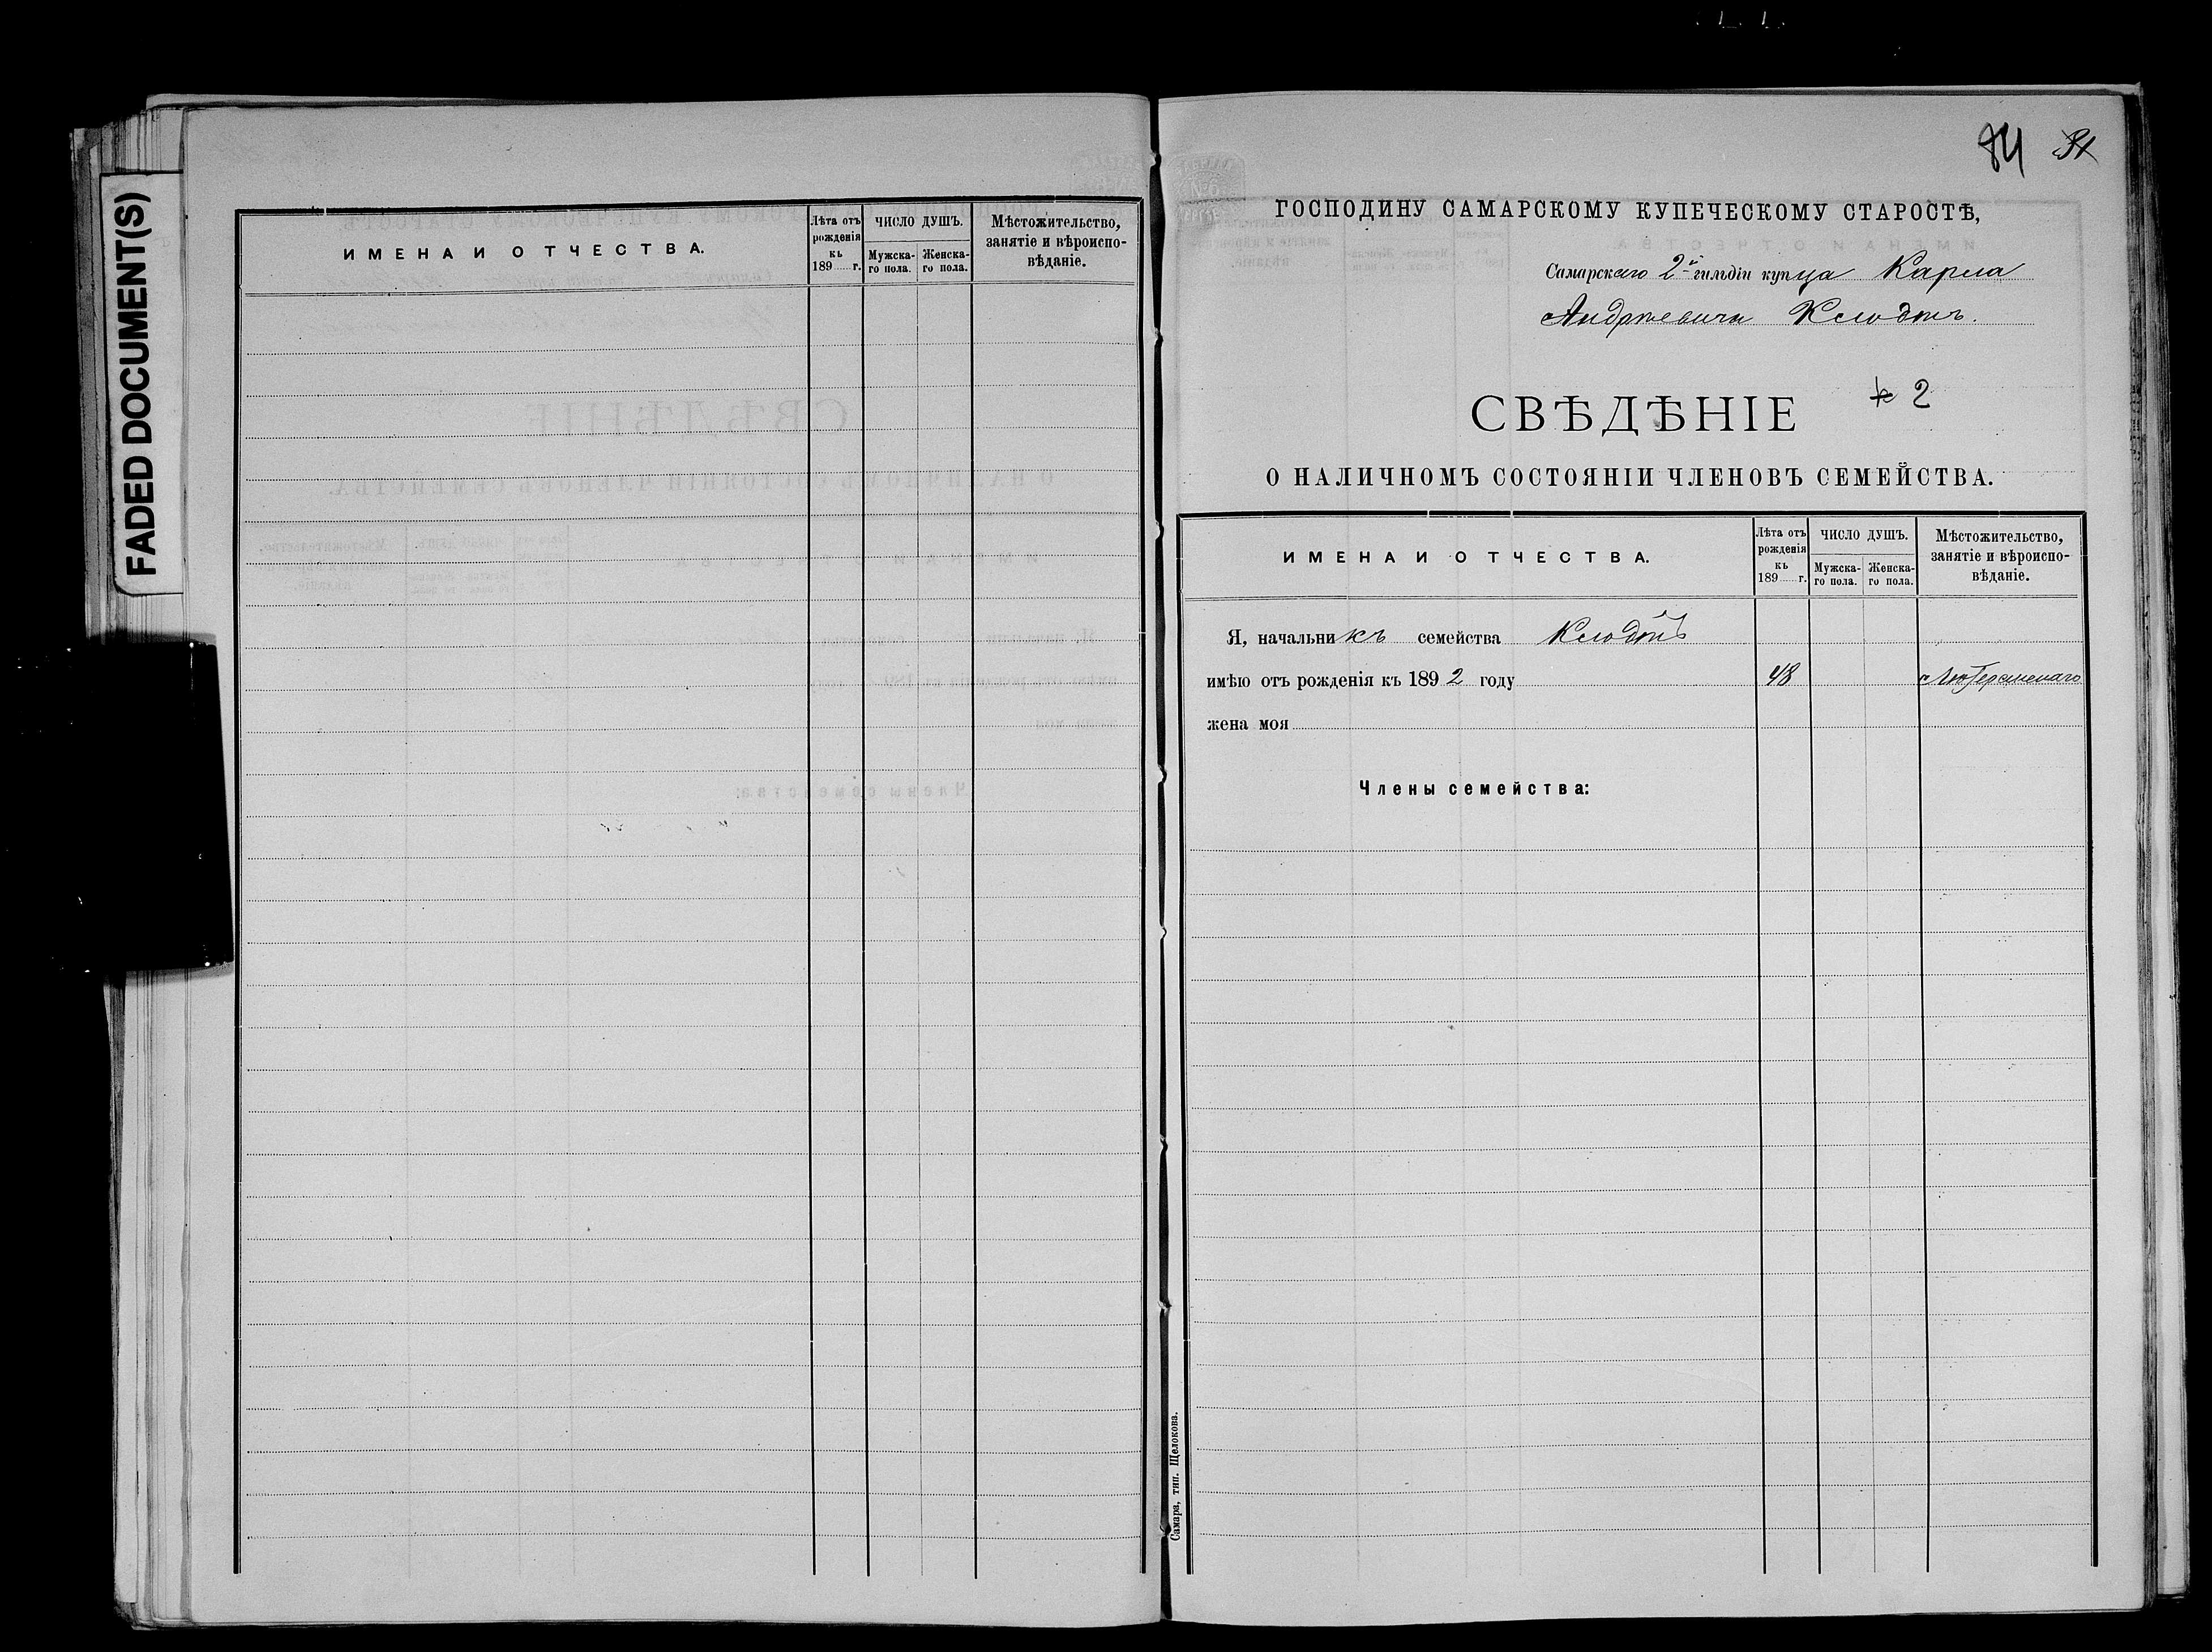 FADED DOCUMENT(S)
ИМЕНА И ОТЧЕСТВА.
Лѣта отъ рожденія къ 189 г.
ЧИСЛО ДУШЪ.
Мужска-го пола.
Женска-го пола.
Мѣстожительство, занятіе и вѣроиспо-вѣданіе.
84
ГОСПОДИНУ САМАРСКОМУ КУПЕЧЕСКОМУ СТАРОСТѢ,
Самарскаго 2й гильдіи купца Карла
Андреевича Клодтъ.
СВѢДѢНІЕ
2
О НАЛИЧНОМЪ СОСТОЯНІИ ЧЛЕНОВЪ СЕМЕЙСТВА.
ИМЕНА И ОТЧЕСТВА.
Лѣта отъ рожденія къ 189 г.
ЧИСЛО ДУШЪ.
Мужска-го пола.
Женска-го пола.
Мѣстожительство, занятіе и вѣроиспо-вѣданіе.
Я, начальникъ семейства Клодтъ
имѣю отъ рожденія къ 1892 году 48 Лютеранскаго
жена моя
Члены семейства:
Самара, тип. Щелокова.